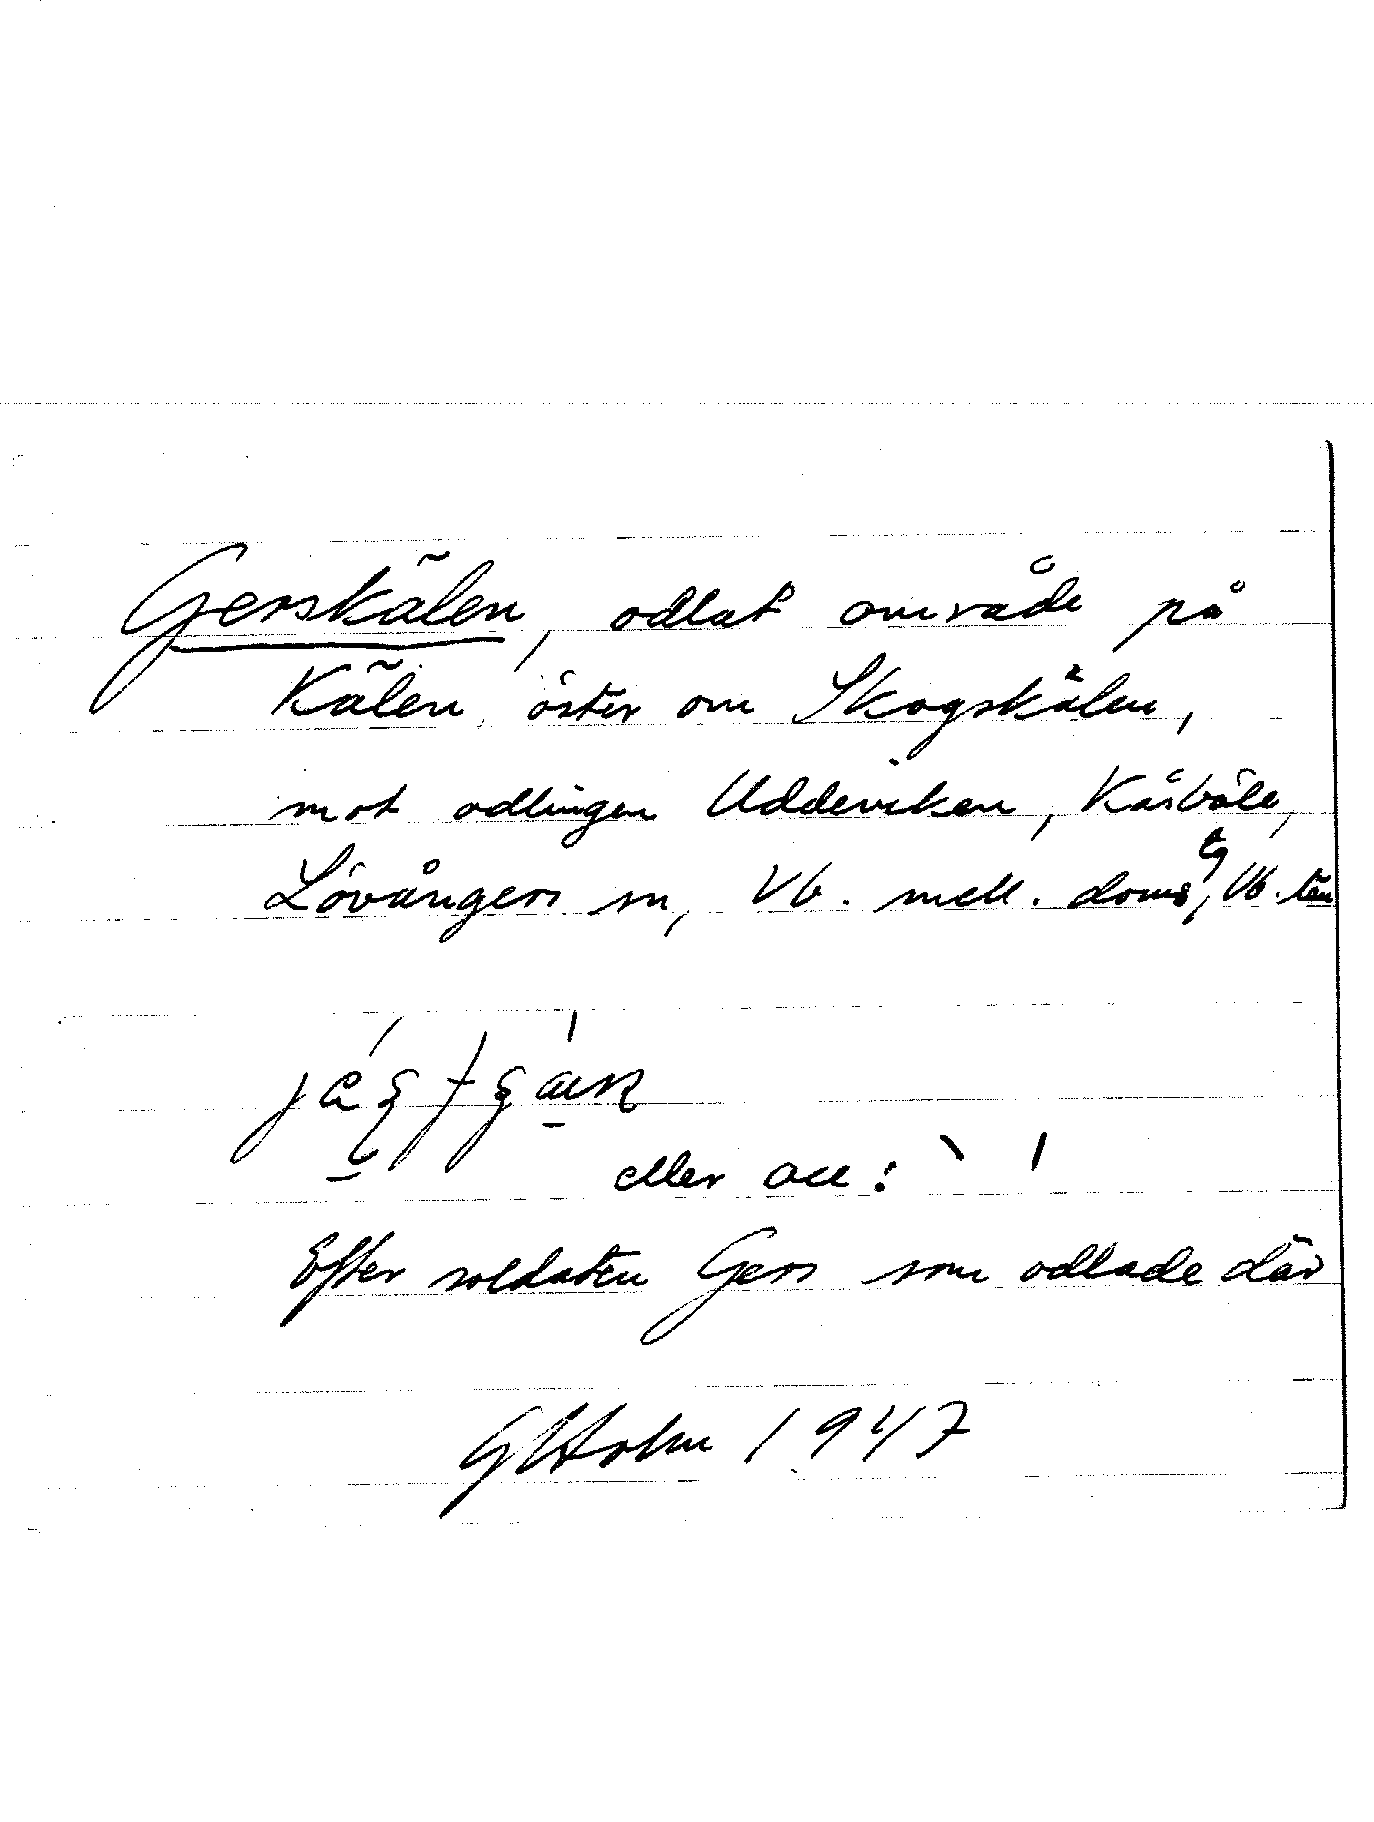 Gerskälen, odlat område på
Kälen, öster om Skogskälen,
mot odlingen Uddeviken, Kåsböle,
Lövångers sn, Vb. mell. doms tg, Vb. län
eller acc:
Efter soldaten Gers som odlade där
GHolm 1947